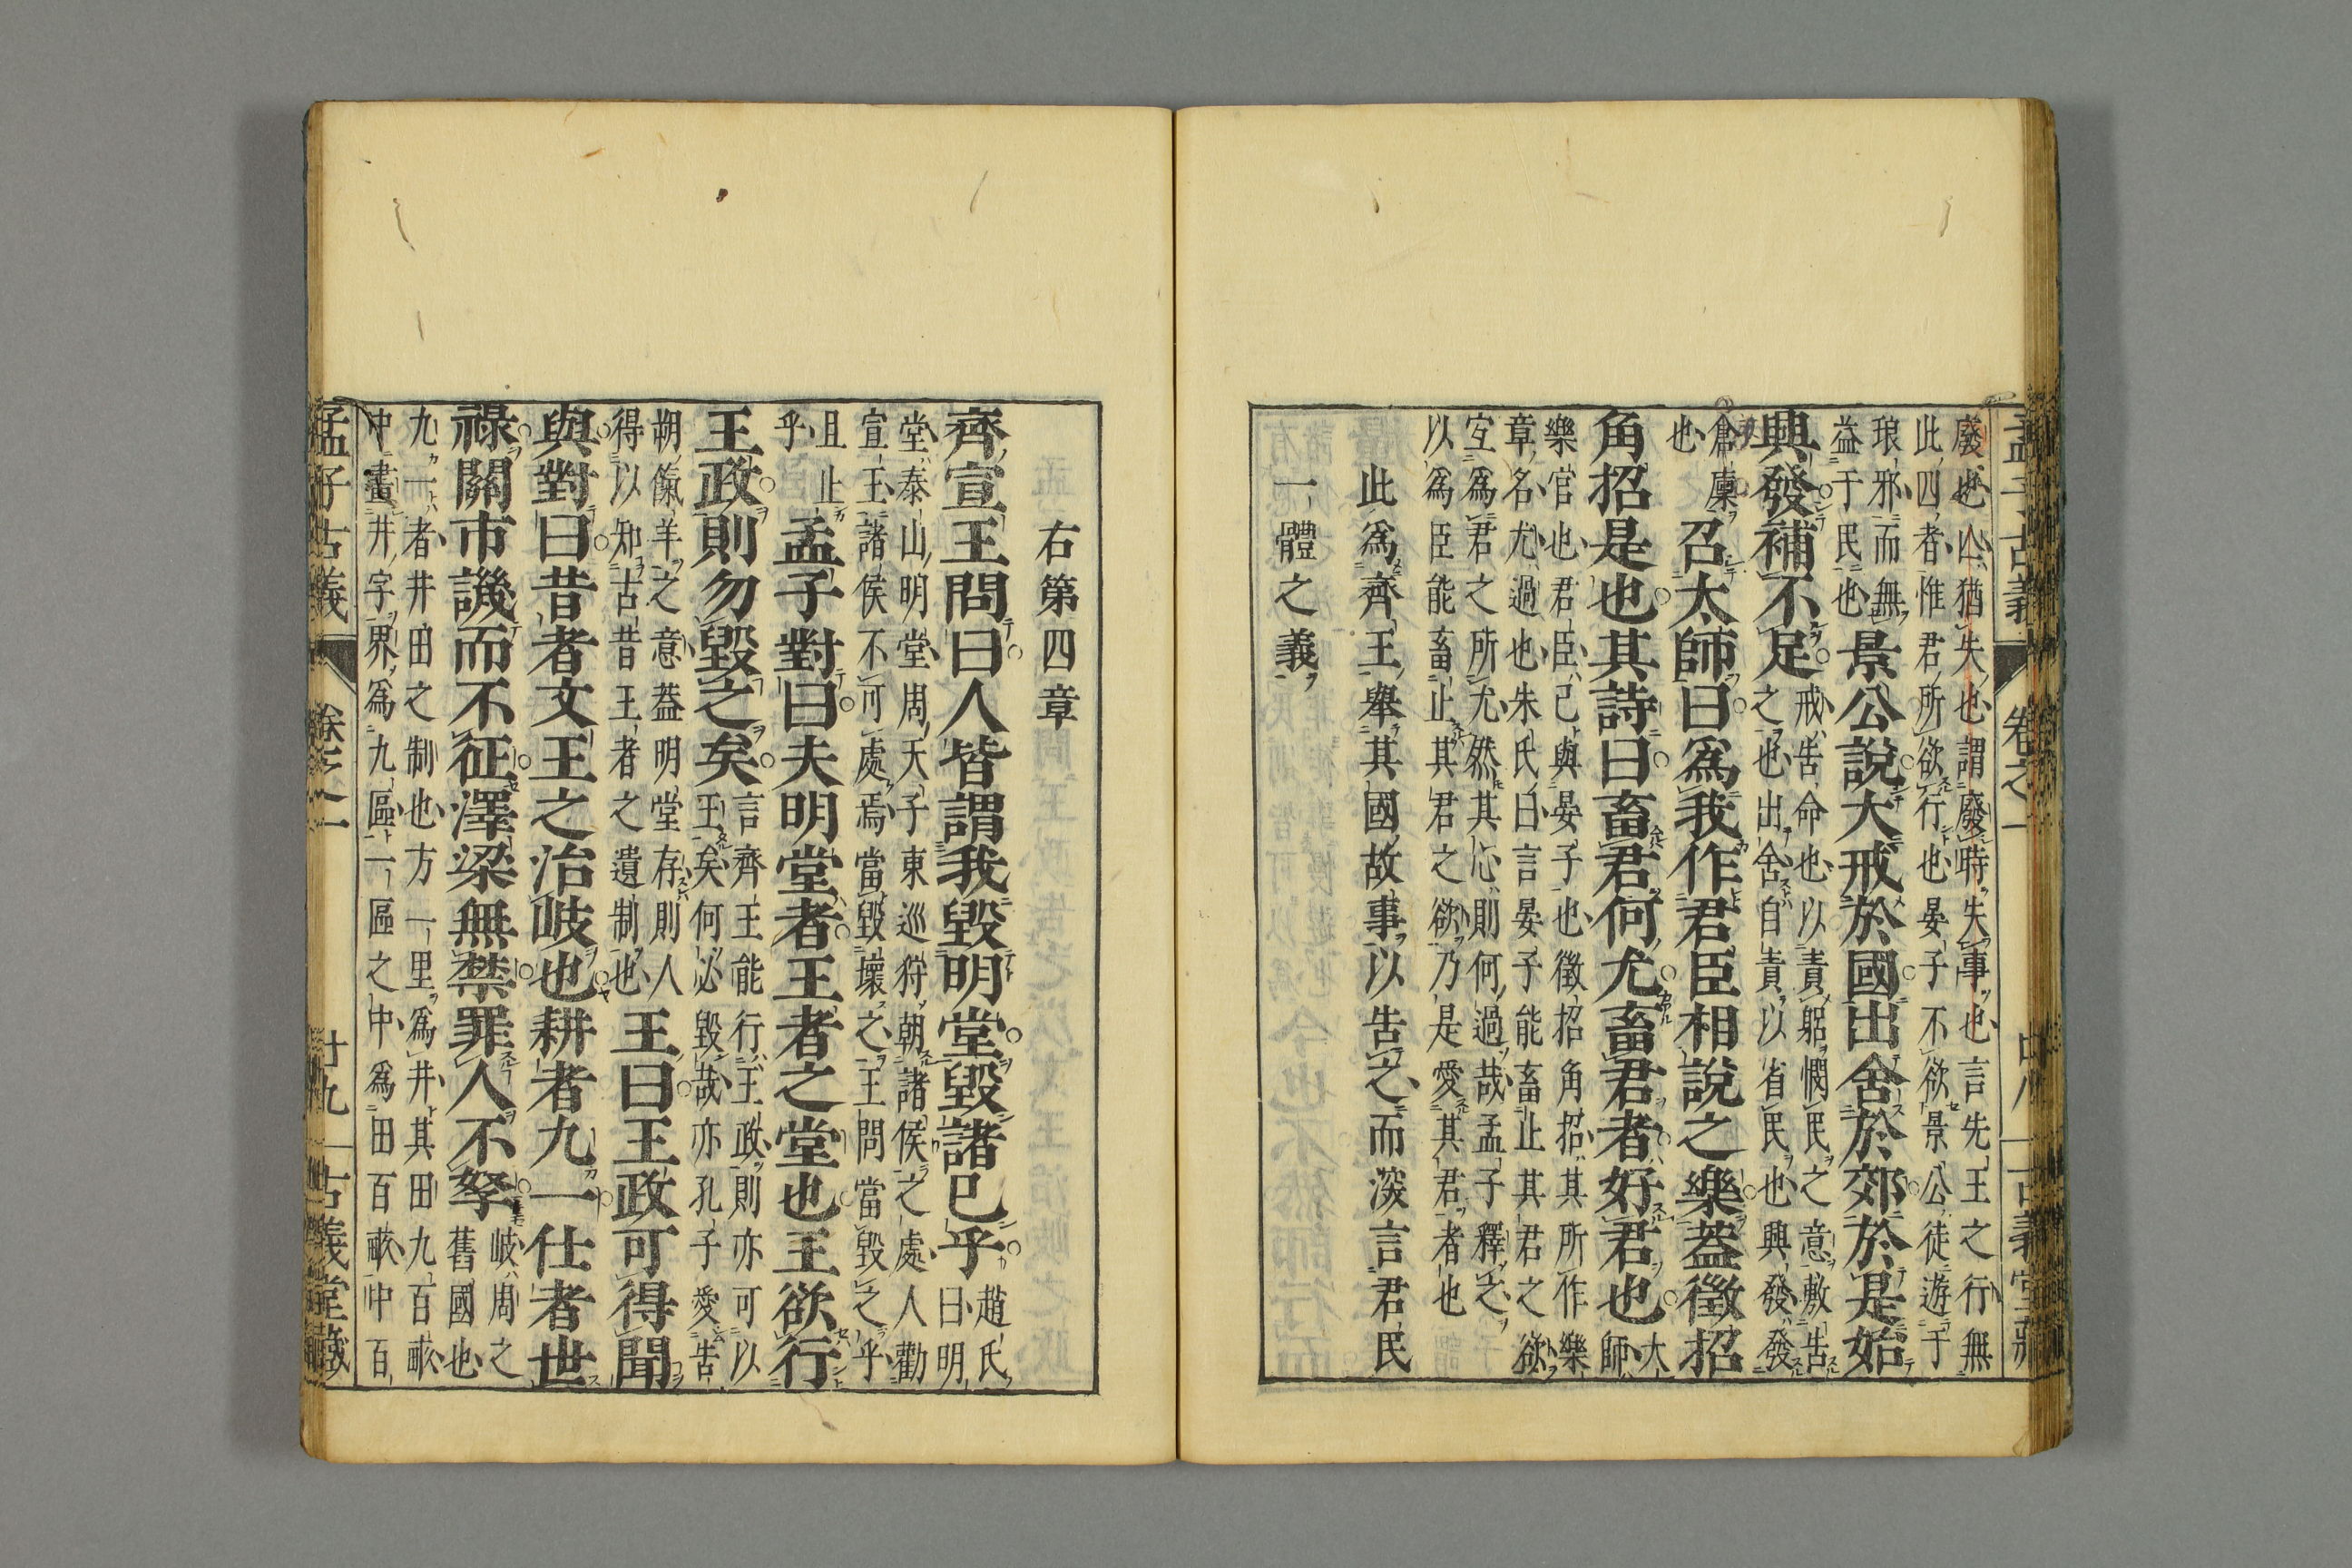 廢也亾猶失也謂廢時失事也言先王之行無
此四者惟君所欲行也晏子不欲景公徒遊于
琅邪而無
益于民也
景公說大戒於國出舍於郊於是始
興發補不足
戒告命也以責躬憫民之意敷告
之也出舍自責以省民也興發發
倉廩
也
召太師曰爲我作君臣相說之樂蓋徵招
角招是也其詩曰畜君何尤畜君者好君也
大
師
樂官也君臣己與晏子也徵招角招其所作樂
章名尤過也朱氏曰言晏子能畜止其君之欲
宐爲君之所尤然其心則何過哉孟子釋之
以爲臣能畜止其君之欲乃是愛其君者也
此爲齊王舉其國故事以告之而深言君民
一體之義
孟子古義
卷之一
古義堂藏
右第四章
齊宣王問曰人皆謂我毀明堂毀諸已乎
趙氏
曰明
堂泰山明堂周天子東巡狩朝諸侯之處人勸
宣王諸侯不可處焉當毀壞之王問當毀之乎
且止
乎
孟子對曰夫明堂者王者之堂也王欲行
王政則勿毀之矣
言齊王能行王政則亦可以
王矣何必毀哉亦孔子愛告
朔餼羊之意蓋明堂存則人
得以知古昔王者之遺制也
王曰王政可得聞
與對曰昔者文王之治岐也耕者九一仕者世
祿關市譏而不征澤梁無禁罪人不孥
岐周之
舊國也
九一者井田之制也方一里爲井其田九百畝
中畫井字界爲九區一區之中爲田百畝中百
孟子古義
卷之一
廿九
古義堂藏